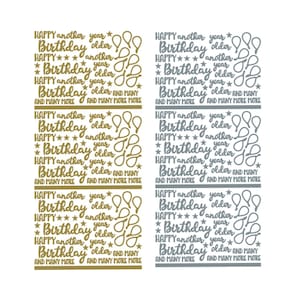 HAPPY another year
Birthday older
HAPPY another year
Birthday older
AND MANY
AND MANY MORE MORE
HAPPY another year
Birthday older
HAPPY another year
Birthday older
AND MANY
AND MANY MORE MORE
HAPPY another year
Birthday older
HAPPY another year
Birthday older
AND MANY
AND MANY MORE MORE
HAPPY another year
Birthday older
HAPPY another year
Birthday older
AND MANY
AND MANY MORE MORE
HAPPY another year
Birthday older
HAPPY another year
Birthday older
AND MANY
AND MANY MORE MORE
HAPPY another year
Birthday older
HAPPY another year
Birthday older
AND MANY
AND MANY MORE MORE